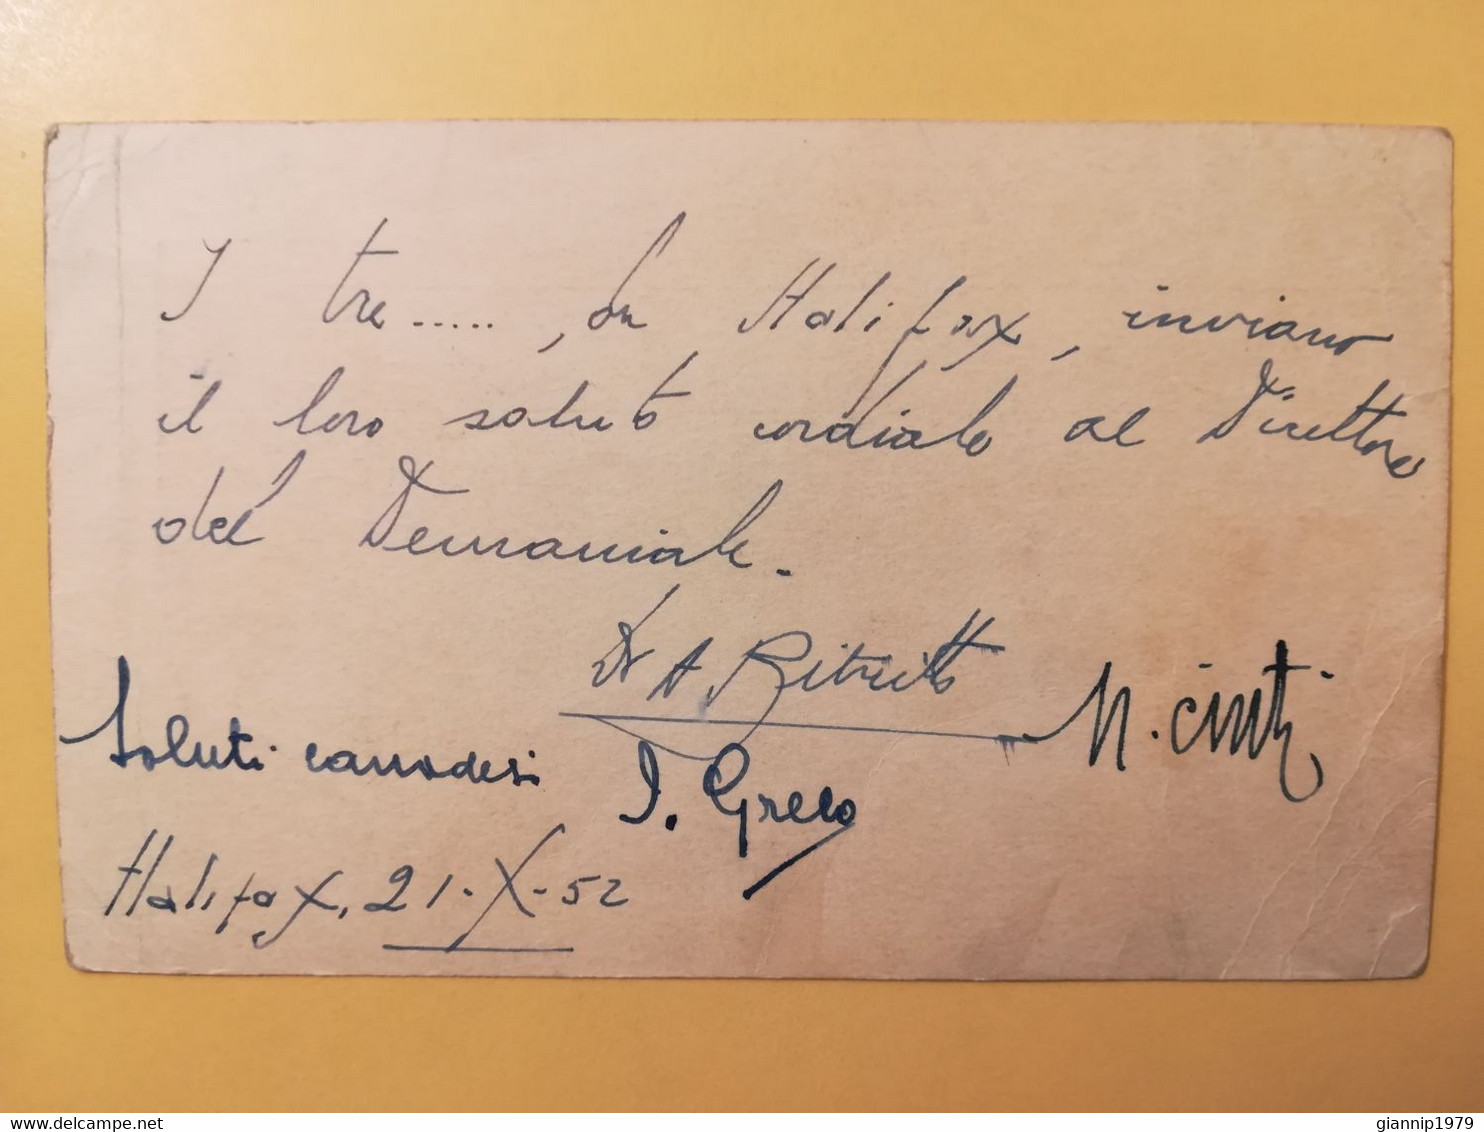 I tre ....., da Halifax, inviano
il loro saluto cordiale al Direttore
del Demaniale.
Dr A.
N. Cinti
Saluti canadesi
I. Greco
Halifax, 21-X-52
delcampe.net
giannip1979